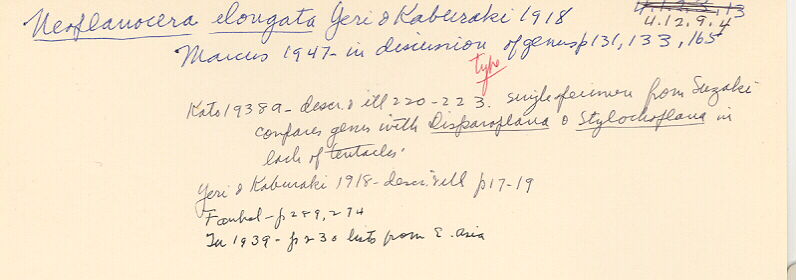 Neoplanocera elongata Yeri & Kaburaki 1918
4.12.9.4
Marcus 1947- in discussion of genus p131, 133, 165
type
Kato 1938a- descr. & ill 220-223. single specimen from Suzaki
compares genus with Disparoplana & Stylochoplana in
lack of tentacles.
Yeri & Kaburaki 1918- descr. & ill p17-19
Faubel- p 289, 294
Tu 1939- p230 lists from E. Asia